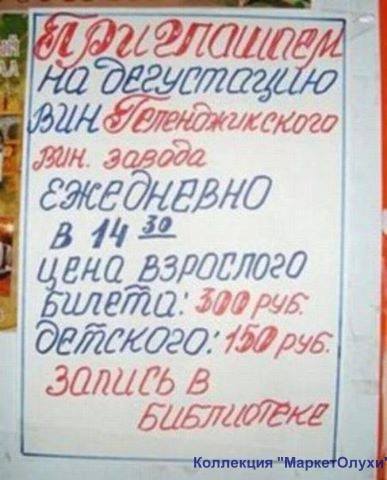 Приглашаем
на дегустацию
вин Геленджикского
вин. завода
ежедневно
в 14 30
цена взрослого
билета: 300 руб.
детского: 150 руб.
запись в
библиотеке
Коллекция "МаркетОлухи"